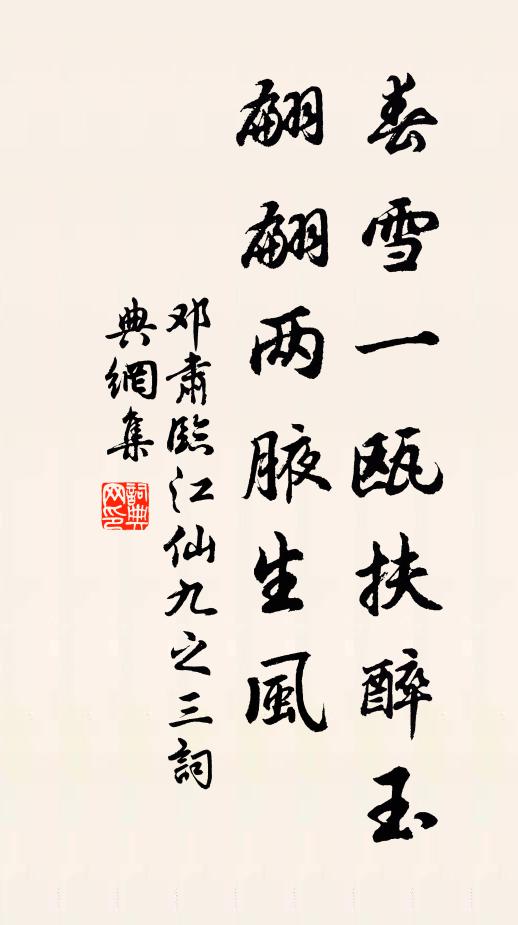 春雪一瓯扶醉玉
翩翩两腋生風
邓肃臨江仙九之三詞
典網集
詞典网印